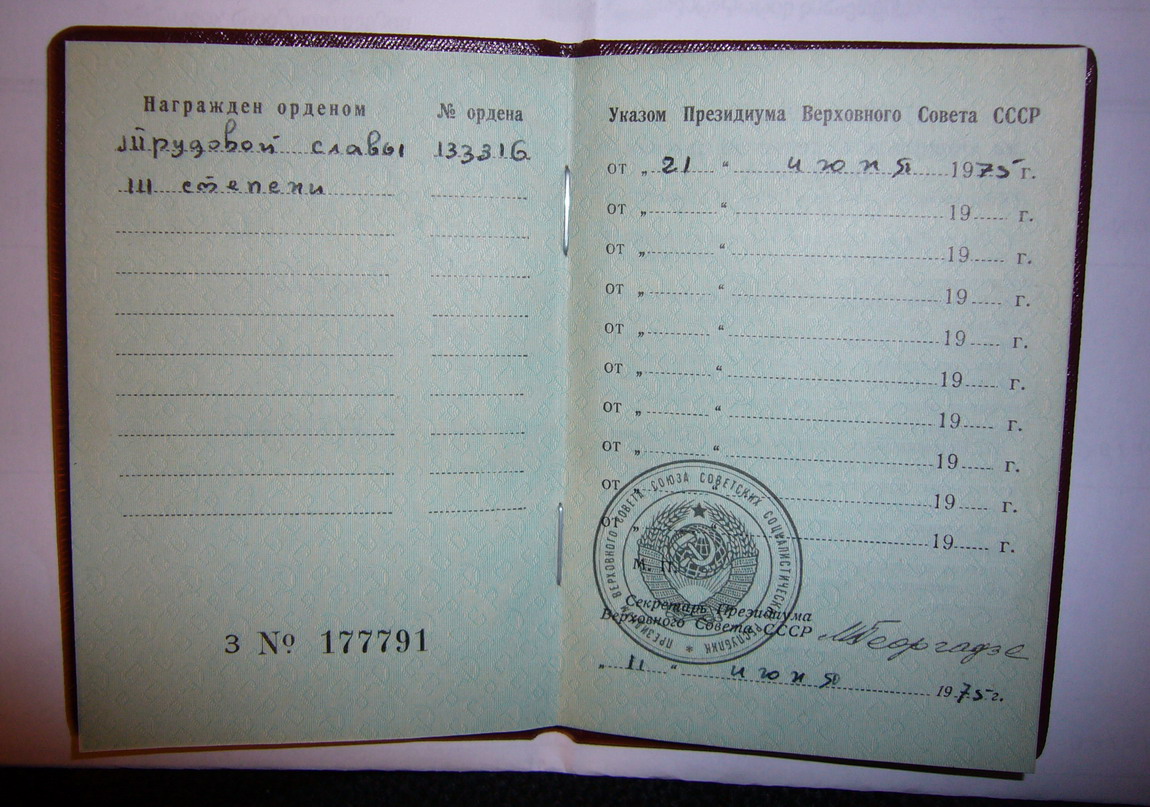 Награжден орденом № ордена
Трудовой славы 133316
III степени
З № 177791
Указом Президиума Верховного Совета СССР
от „ 21 “ июня 1975 г.
от „ “ 19 г.
от „ “ 19 г.
от „ “ 19 г.
от „ “ 19 г.
от „ “ 19 г.
от „ “ 19 г.
от „ “ 19 г.
от „ “ 19 г.
от „ “ 19 г.
ПРЕЗИДИУМ ВЕРХОВНОГО СОВЕТА СОЮЗА СОВЕТСКИХ СОЦИАЛИСТИЧЕСКИХ РЕСПУБЛИК
М. П.
Секретарь Президиума
Верховного Совета СССР МГеоргадзе
„ 11 “ июня 1975 г.